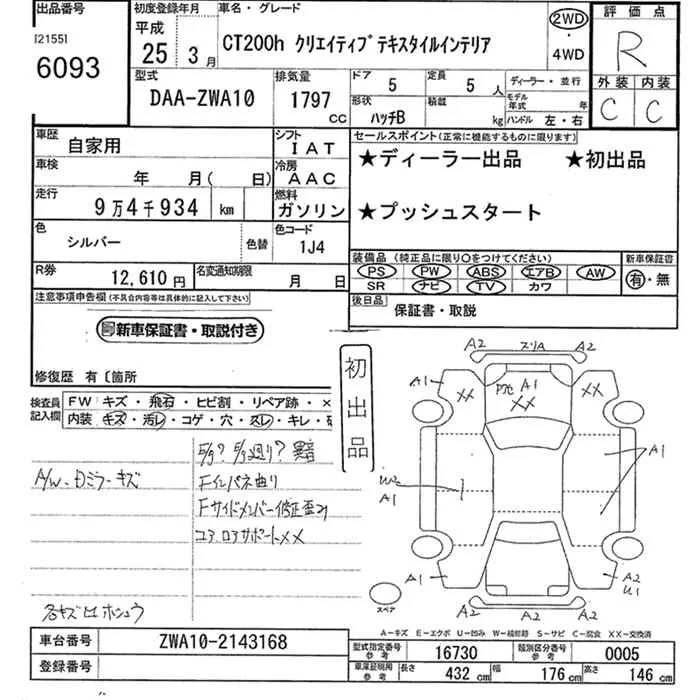 出品番号
初度登録年月
車名・グレード
評価点
[2155]
6093
平成
25 3月
CT200h クリエイティブテキスタイルインテリア
2WD
・
4WD
R
型式
DAA-ZWA10
排気量
1797
CC
ドア 5
定員 5人
ディーラー・並行
形状
ハッチB
積載
kg
モデル年式 年
ハンドル 左・右
外装 内装
C C
車歴
自家用
シフト
IAT
セールスポイント(正常に機能するものに限ります)
★ディーラー出品 ★初出品
車検
年 月( 日)
冷房
AAC
走行
9万4千934 km
燃料
ガソリン
★プッシュスタート
色
シルバー
色替
色コード
1J4
装備品 (純正品に限り○をつけてください)
新車保証書
PS PW ABS エアB AW
SR ナビ TV カワ
有・無
R券
12,610円
名変通知期限
月 日
後日品
保証書・取説
注意事項申告欄(不具合内容等は具体的に記入して下さい)
新車保証書・取説付き
修復歴 有〔箇所
初出品
検査員
記入欄
FW キズ・飛石・ヒビ割・リペア跡・×
内装 キズ・汚レ・コゲ・穴・スレ・キレ・
A/W・Dミラーキズ
Fインパネ曲り
Fサイドメンバー修正歪み
コアロアサポート××
A2 スリA A2
A1 ×× A1 ×× ××
A1
U2
A1
A1 A2
U1
A2 A2
スペア
A-キズ E-エクボ U-凹み W-補修跡 S-サビ C-腐食 XX-交換済
車台番号
ZWA10-2143168
型式指定番号
参考
16730
類別区分番号
参考
0005
登録番号
車庫証明用
参考
長さ 432 cm
幅 176 cm
高さ 146 cm